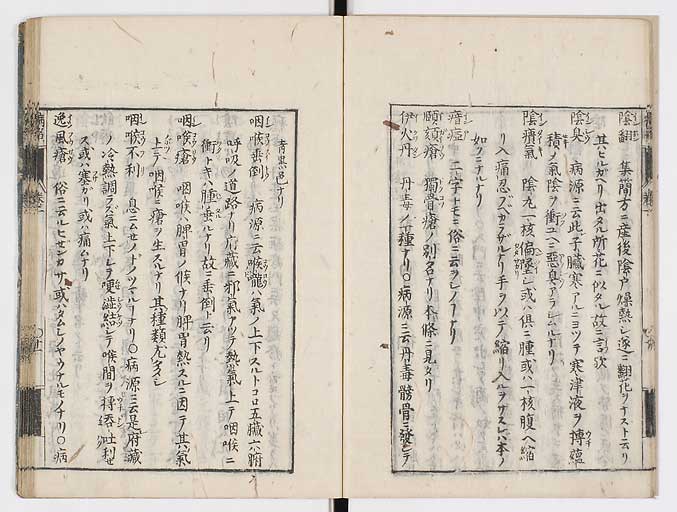 陰翻 集簡方ニ産後陰戸燥熱シ遂ニ翻花ヲナスト云リ
其ヒルガヘリ出タル所花ニ似タル故ニ言欤
陰臭 病源ニ云此子臓寒アルニヨツテ寒津液ヲ搏蘊
積ノ氣陰ヲ衝ユヘニ悪臭アラシムルナリ
陰㿉氣 陰丸一核偏墜シ或ハ俱ニ腫或ハ一核腹ヘ縮
リ入痛忍フヘカラザルナリ手ヲ以テ縮リ入ルヲサスレハ本ノ
如クニナルナリ
二字トモニ俗ニ云
獨骨瘡ノ別名ナリ本條ニ見タリ
伊火丹 丹毒ノ一種ナリ○病源ニ云丹毒髈骨ニ發シテ
青黒色ナリ
咽喉垂倒 病源ニ云喉嚨ハ氣ノ上下スルトコロ五臓六腑
呼吸ノ道路ナリ府藏ニ邪氣アツテ熱氣上テ咽喉ニ
衝トキハ腫垂ルナリ故ニ垂倒ト云リ
咽喉瘡 咽喉ハ脾胃ノ候ナリ脾胃熱スルニ因テ其氣
上テ咽喉ニ瘡ヲ生スルナリ其種類尤多シ
咽喉不利 息ニムセノドノツマルナリ○病源ニ云是府藏
ノ冷熱調ラズ氣上下シテ哽澁結シテ喉間ヲ搏吞吐利セ
ス或ハ塞ガリ或ハ痛ムナリ
逸風瘡 俗ニ云ルヒゼンカサ或ハタムシノヤウナルモノナリ○病